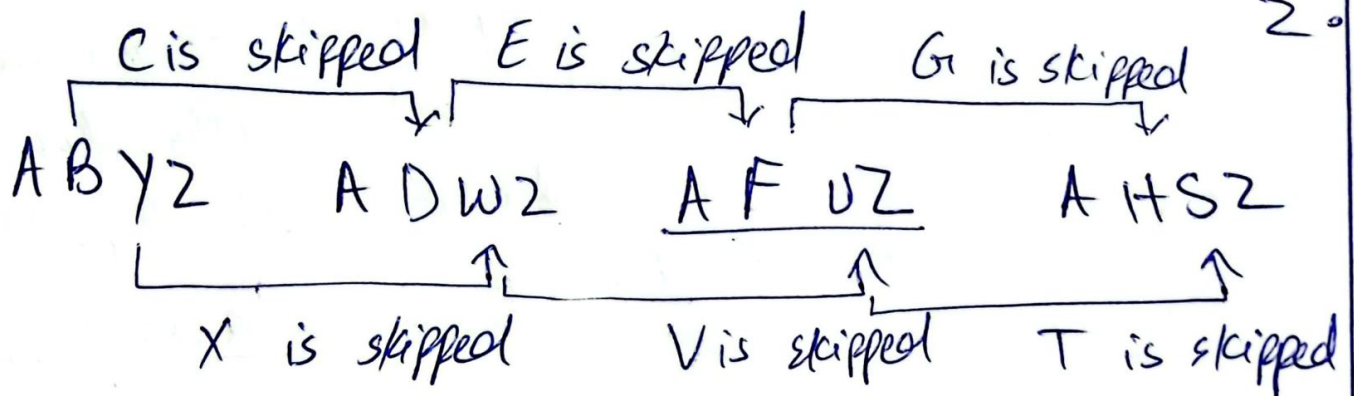 2.
C is skipped E is skipped G is skipped
A B Y Z A D W Z A F U Z A H S Z
X is skipped V is skipped T is skipped